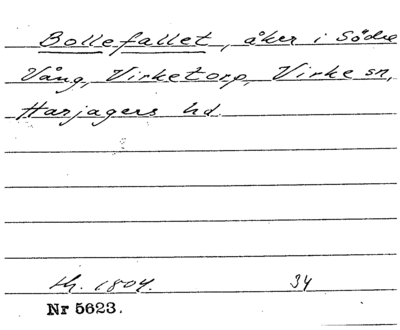 Bollefallet, åker i Södre
Vång, Virketorp, Virke sn,
Harjagers hd.
th. 1804. 34
Nr 5623.